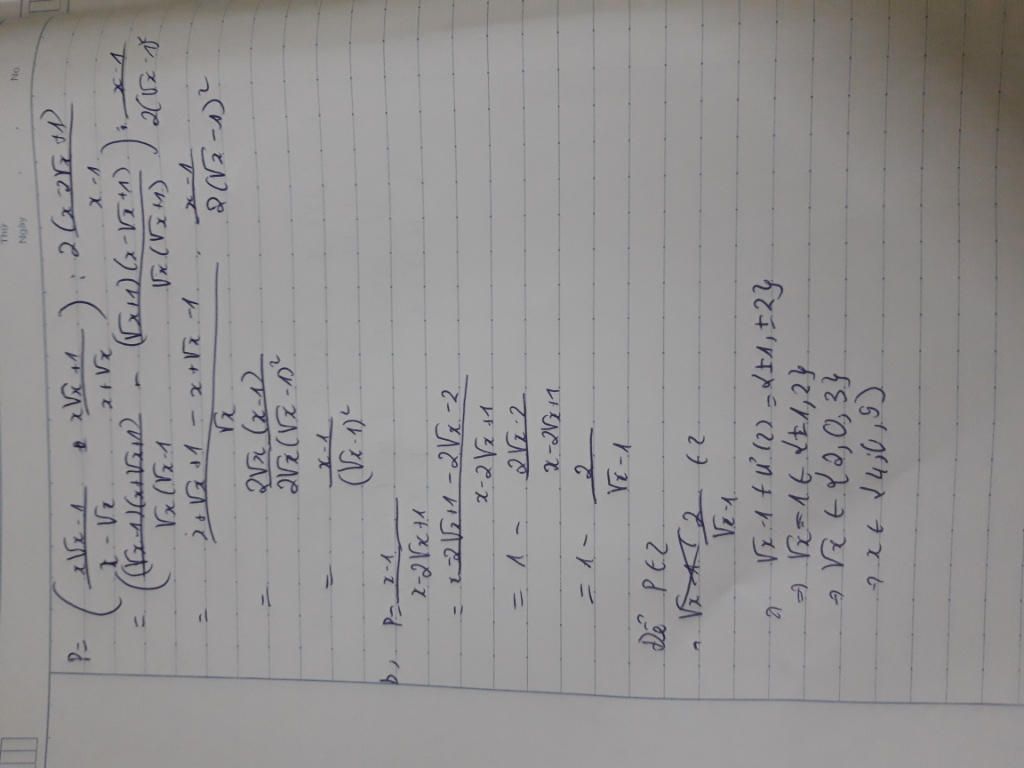 Thứ
Ngày
No.
P = ( (x√x - 1)/(x - √x) - (x√x + 1)/(x + √x) ) : 2(x - 2√x + 1)/(x - 1)
= ( (√x - 1)(x + √x + 1)/(√x(√x - 1) - (√x + 1)(x - √x + 1)/(√x(√x + 1)) ) . (x - 1)/(2(√x - 1)²)
= (x + √x + 1 - x + √x - 1)/√x . (x - 1)/(2(√x - 1)²)
= 2√x(x - 1)/(2√x(√x - 1)²)
= (x - 1)/(√x - 1)²
b, P = (x - 1)/(x - 2√x + 1)
= (x - 2√x + 1 - 2√x - 2)/(x - 2√x + 1)
= 1 - (2√x - 2)/(x - 2√x + 1)
= 1 - 2/(√x - 1)
Để P ∈ Z
2/(√x - 1) ∈ Z
⇒ √x - 1 ∈ Ư(2) = {±1, ±2}
⇒ √x = 1 ∈ {±1, 2}
⇒ √x ∈ {2, 0, 3}
⇒ x ∈ {4, 0, 9}